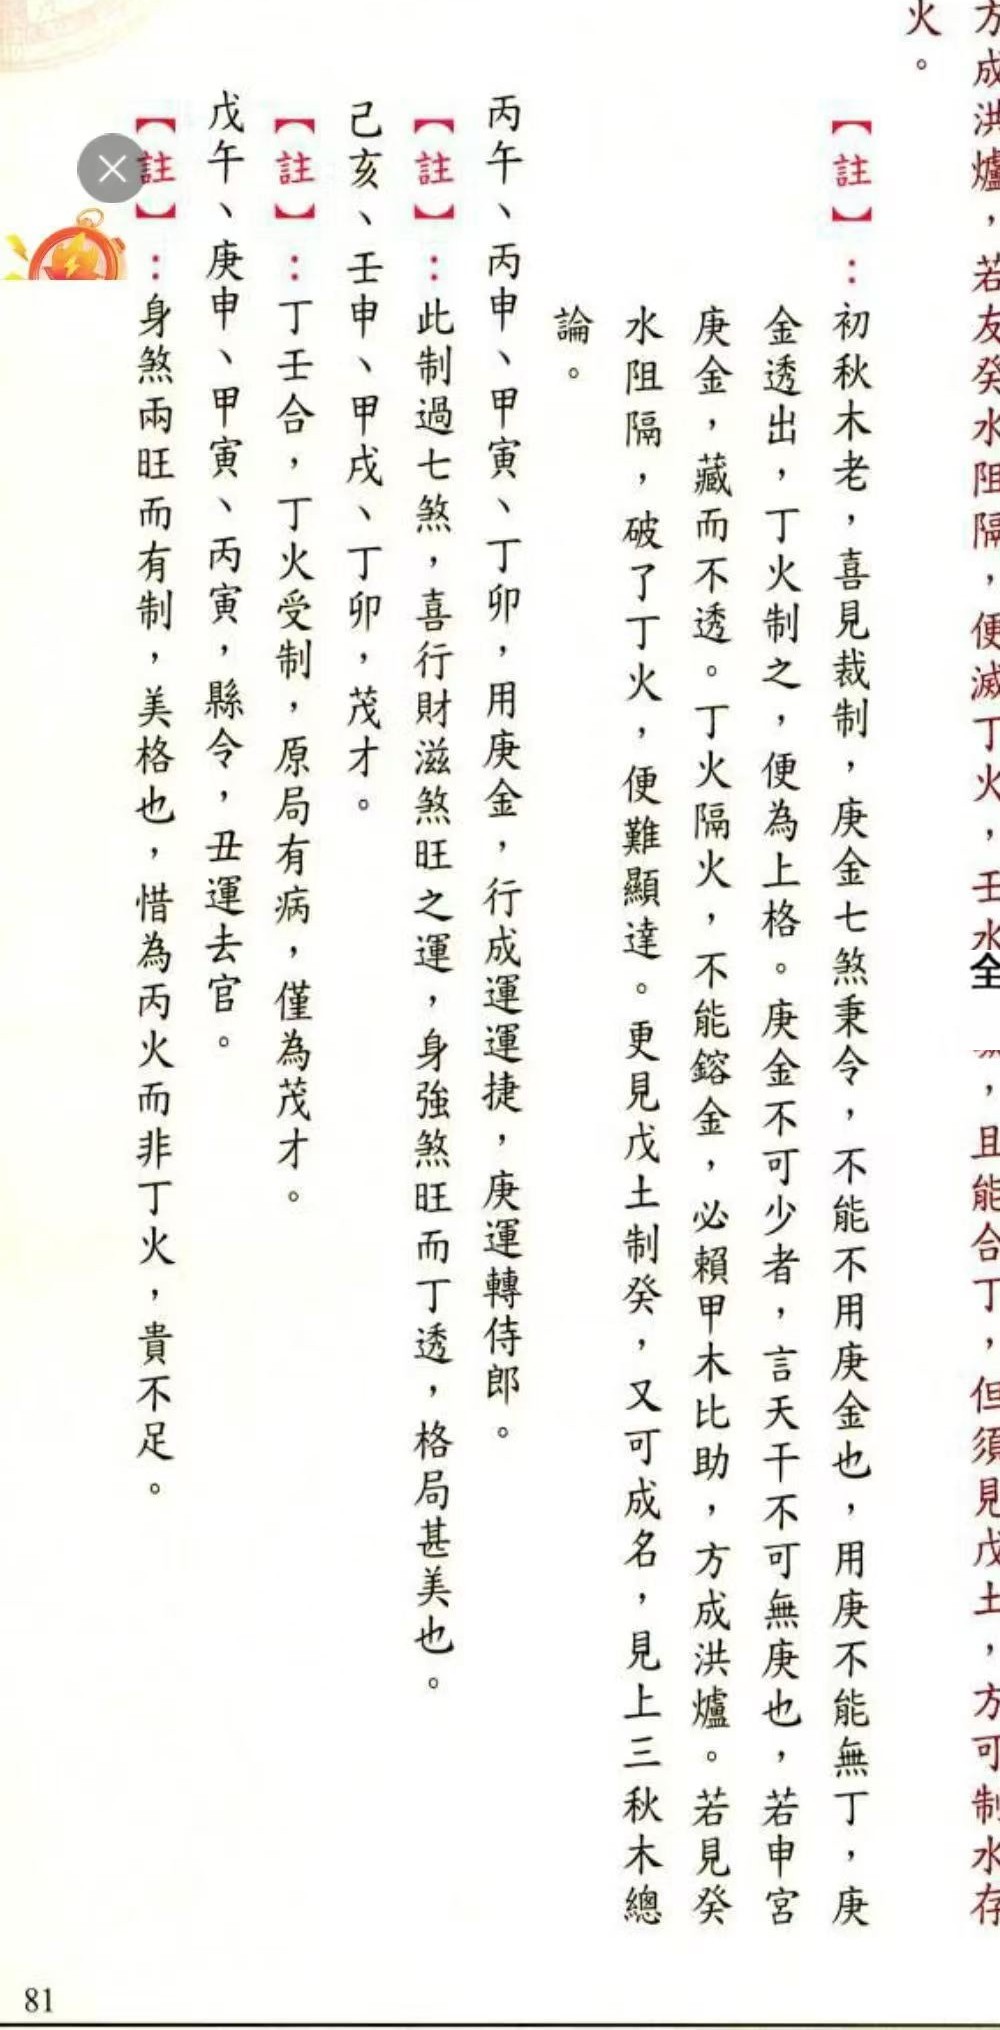 方成洪爐，若友癸水阻隔，便滅丁火，壬水
全
，且能合丁，但須見戊土，方可制水存
火。
【註】：初秋木老，喜見裁制，庚金七煞秉令，不能不用庚金也，用庚不能無丁，庚
金透出，丁火制之，便為上格。庚金不可少者，言天干不可無庚也，若申宮
庚金，藏而不透。丁火隔火，不能鎔金，必賴甲木比助，方成洪爐。若見癸
水阻隔，破了丁火，便難顯達。更見戊土制癸，又可成名，見上三秋木總
論。
丙午、丙申、甲寅、丁卯，用庚金，行成運運捷，庚運轉侍郎。
【註】：此制過七煞，喜行財滋煞旺之運，身強煞旺而丁透，格局甚美也。
己亥、壬申、甲戌、丁卯，茂才。
【註】：丁壬合，丁火受制，原局有病，僅為茂才。
戊午、庚申、甲寅、丙寅，縣令，丑運去官。
【註】：身煞兩旺而有制，美格也，惜為丙火而非丁火，貴不足。
81